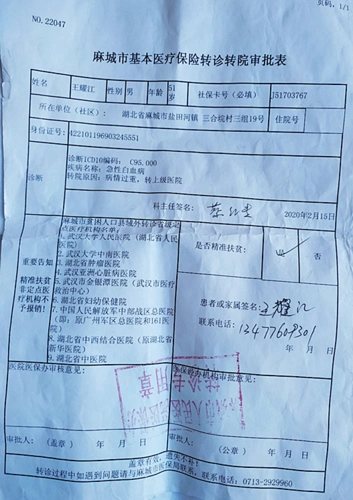 页码：1/1
NO.22047
麻城市基本医疗保险转诊转院审批表
姓名 王耀江 性别 男 年龄 51岁 社保卡号（必填） J51703767
所在单位（社区）： 湖北省麻城市盐田河镇 三合垸村三组19号 住院号
身份证号: 422101196903245551
诊断
诊断ICD10编码: C95.000
疾病名称: 急性白血病
转院原因: 病情过重, 转上级医院
科主任签名:
2020年2月15日
重要告知
精准扶贫非定点医疗机构不予报销!
麻城市贫困人口县域外转诊省级定点医疗机构名单:
1. 武汉大学人民医院（湖北省人民医院）
2. 武汉大学中南医院
3. 湖北省肿瘤医院
4. 武汉亚洲心脏病医院
5. 武汉市金银潭医院（武汉市医疗救治中心）
6. 湖北省妇幼保健院
7. 中国人民解放军中部战区总医院（即: 原广州军区总医院和161医院）
8. 湖北省中西结合医院（原湖北省新华医院）
9. 湖北省中医院
是否精准扶贫: 是 否
患者或家属签名: 王耀江
联系电话: 13477609301
医院医保办审核意见:
医保经办机构审批意见:
转诊专用章
审批人: （盖章） 年 月 日
审批人: （公章） 年 月 日
盖章有效, 遗失不补!
转诊过程中如遇到问题请与麻城市医保局联系, 联系电话: 0713-2929960